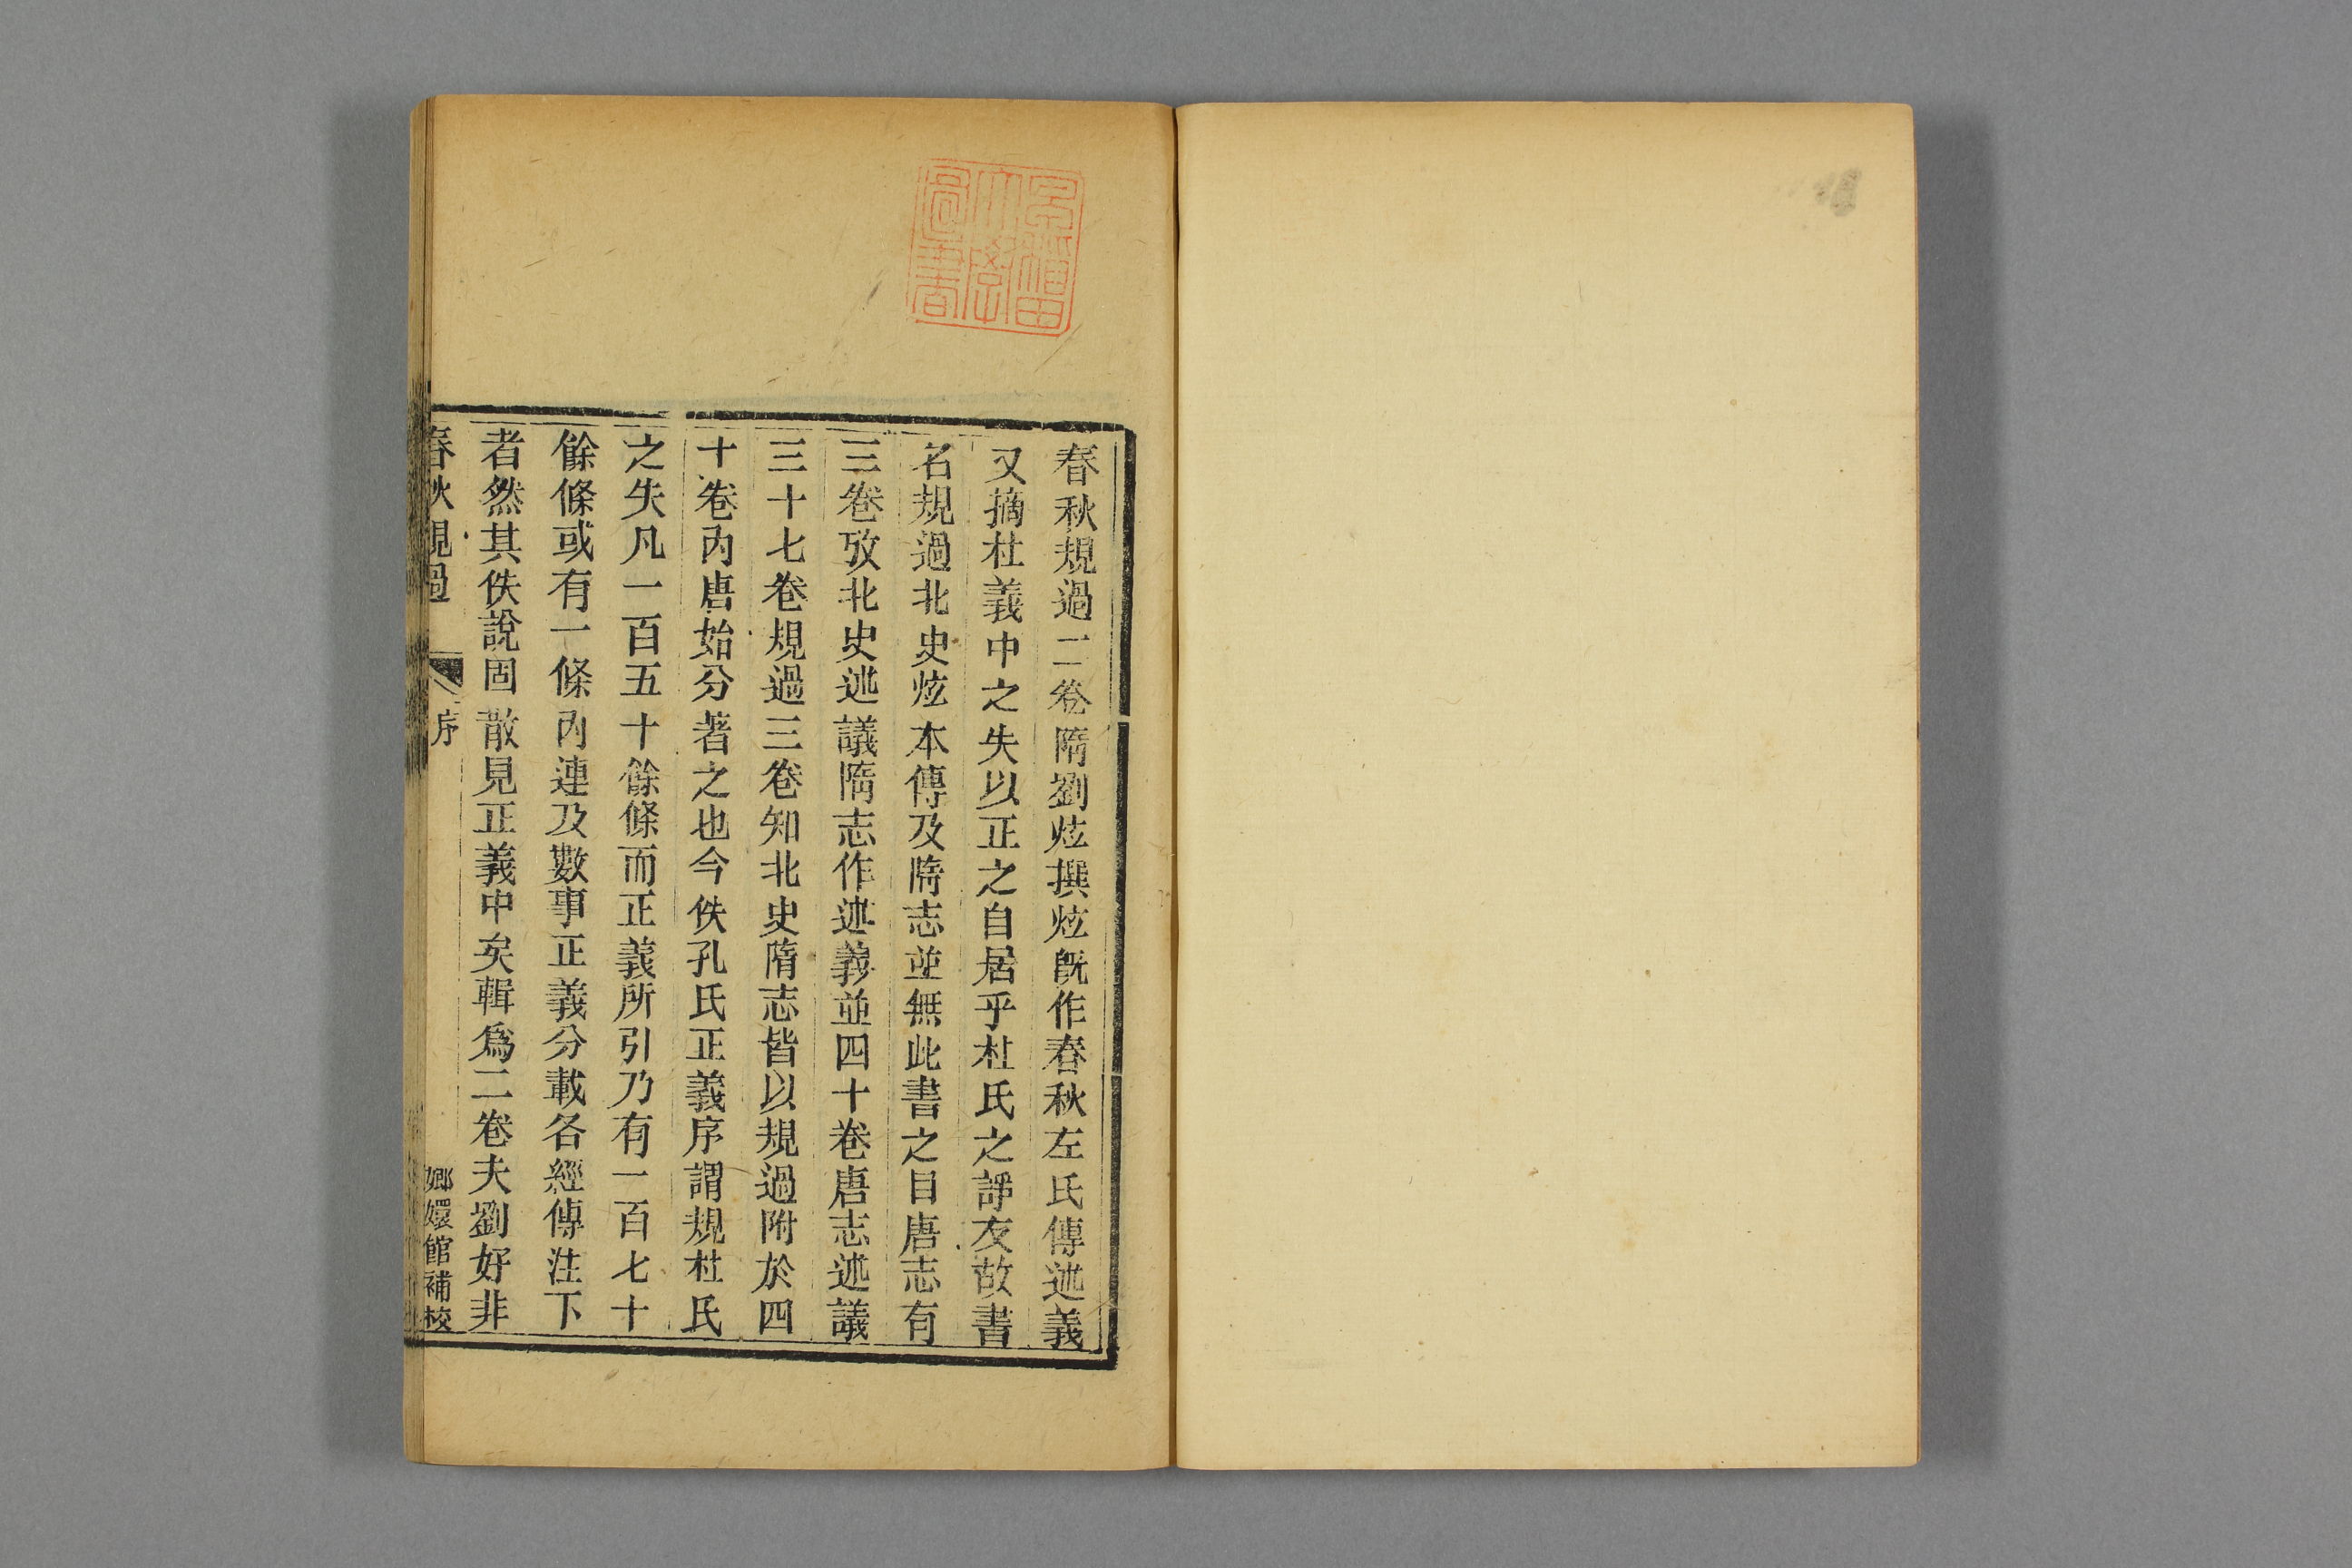 春秋規過二卷隋劉炫撰炫既作春秋左氏傳述義
又摘杜義中之失以正之自居乎杜氏之諍友故書
名規過北史炫本傳及隋志並無此書之目唐志有
三卷攷北史述議隋志作述義並四十卷唐志述議
三十七卷規過三卷知北史隋志皆以規過附於四
十卷內唐始分著之也今佚孔氏正義序謂規杜氏
之失凡一百五十餘條而正義所引乃有一百七十
餘條或有一條內連及數事正義分載各經傳注下
者然其佚說固散見正義中矣輯爲二卷夫劉好非
春秋規過 序 嫏嬛館補校